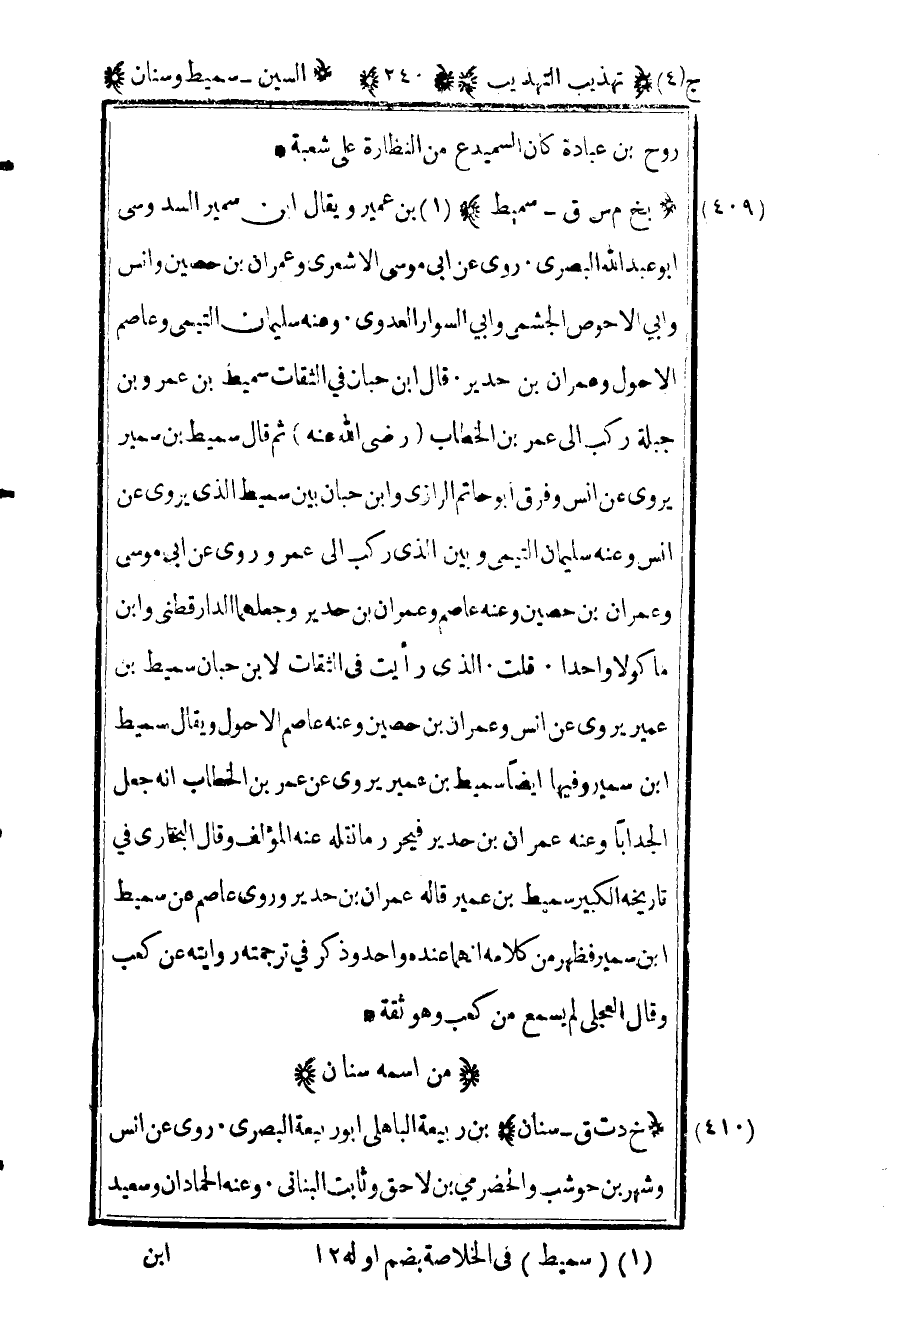 ج(٤) ﴿ تهذيب التهذيب ﴾ ﴿ ٢٤٠ ﴾ ﴿ السين ـ سميط وسنان ﴾
روح بن عبادة كان السميدع من النظارة على شعبة *
(٤٠٩) ﴿ بخ م س ق ـ سميط ﴾ (١) بن عمير ويقال ابن سمير السدوسى
ابو عبد الله البصرى ٠ روى عن ابى موسى الاشعرى وعمران بن حصين وانس
وابي الاحوص الجشمى وابي السوار العدوى ٠ وعنه سليمان التيمى وعاصم
الاحول وعمران بن حدير ٠ قال ابن حبان في الثقات سميط بن عمر وبن
جبلة ركب الى عمر بن الخطاب ( رضى الله عنه ) ثم قال سميط بن سمير
يروى عن انس وفرق ابو حاتم الرازى وابن حبان بين سميط الذى يروى عن
انس وعنه سليمان التيمى وبين الذى ركب الى عمر وروى عن ابى موسى
وعمران بن حصين وعنه عاصم وعمران بن حدير وجعلهما الدارقطنى وابن
ماكولا واحدا ٠ قلت ٠ الذى رأيت فى الثقات لابن حبان سميط بن
عمير يروى عن انس وعمران بن حصين وعنه عاصم الاحول ويقال سميط
ابن سمير وفيها ايضاً سميط بن عمير يروى عن عمر بن الخطاب انه جعل
الجد اباً وعنه عمران بن حدير فيحرر ما نقله عنه المؤلف وقال البخارى في
تاريخه الكبير سميط بن عمير قاله عمران بن حدير وروى عاصم عن سميط
ابن سمير فظهر من كلامه انهما عنده واحد وذكر في ترجمته روايته عن كعب
وقال العجلى لم يسمع من كعب وهو ثقة *
﴿ من اسمه سنان ﴾
(٤١٠) ﴿ خ د ت ق ـ سنان ﴾ بن ربيعة الباهلى ابو ربيعة البصرى ٠ روى عن انس
وشهر بن حوشب والحضرمي بن لاحق وثابت البنانى ٠ وعنه الحمادان وسعيد
(١) ( سميط ) فى الخلاصة بضم اوله ١٢
ابن